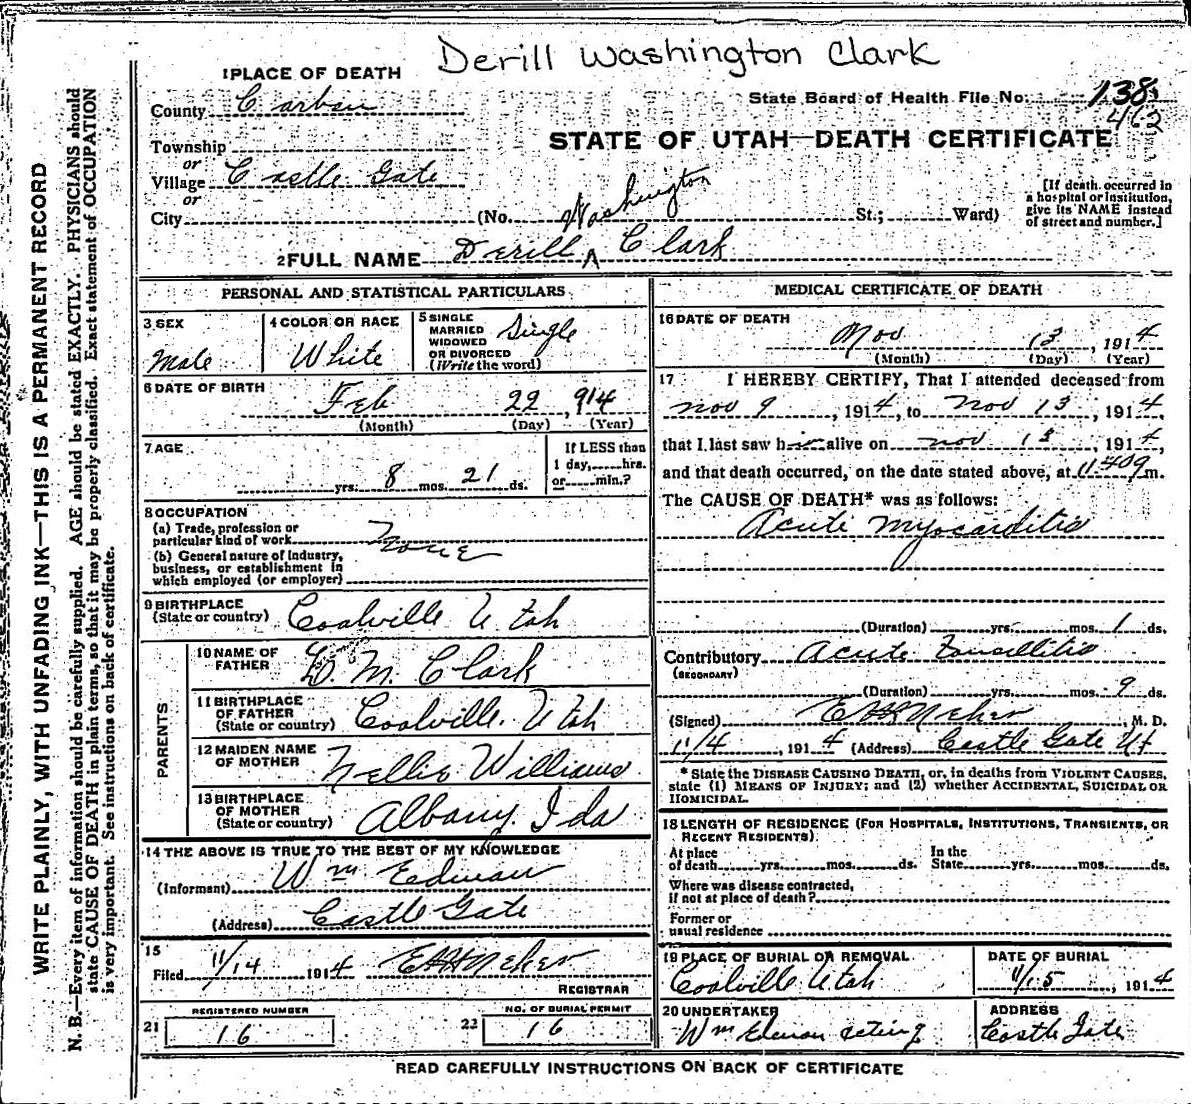 Derill Washington Clark
1 PLACE OF DEATH
County Carbon
State Board of Health File No. 138
462
Township
or
Village Castle Gate
or
City (No. St.; Ward)
STATE OF UTAH—DEATH CERTIFICATE
[If death occurred in
a hospital or institution,
give its NAME instead
of street and number.]
Washington
2 FULL NAME Derill ^ Clark
WRITE PLAINLY, WITH UNFADING INK—THIS IS A PERMANENT RECORD
N. B.—Every item of information should be carefully supplied. AGE should be stated EXACTLY. PHYSICIANS should
state CAUSE OF DEATH in plain terms, so that it may be properly classified. Exact statement of OCCUPATION
is very important. See instructions on back of certificate.
PERSONAL AND STATISTICAL PARTICULARS
3 SEX
Male
4 COLOR OR RACE
White
5 SINGLE
MARRIED
WIDOWED
OR DIVORCED
(Write the word)
Single
6 DATE OF BIRTH
Feb 22, 914
(Month) (Day) (Year)
7 AGE
yrs. 8 mos. 21 ds.
If LESS than
1 day, hrs.
or min.?
8 OCCUPATION
(a) Trade, profession or
particular kind of work None
(b) General nature of industry,
business, or establishment in
which employed (or employer)
9 BIRTHPLACE
(State or country) Coalville Utah
PARENTS
10 NAME OF
FATHER D. M. Clark
11 BIRTHPLACE
OF FATHER
(State or country) Coalville. Utah
12 MAIDEN NAME
OF MOTHER Nellie Williams
13 BIRTHPLACE
OF MOTHER
(State or country) Albany. Ida
14 THE ABOVE IS TRUE TO THE BEST OF MY KNOWLEDGE
(Informant) Wm Edman
(Address) Castle Gate
15
Filed 11/14 1914
REGISTRAR
REGISTERED NUMBER
21 16
NO. OF BURIAL PERMIT
22 16
MEDICAL CERTIFICATE OF DEATH
16 DATE OF DEATH
Nov 13, 1914
(Month) (Day) (Year)
17 I HEREBY CERTIFY, That I attended deceased from
Nov 9, 1914, to Nov 13, 1914,
that I last saw him alive on Nov 13, 1914
and that death occurred, on the date stated above, at m.
The CAUSE OF DEATH* was as follows:
Acute Myocarditis
(Duration) yrs. mos. 1 ds.
Contributory Acute Tonsillitis
(SECONDARY)
(Duration) yrs. mos. 9 ds.
(Signed) M. D.
11/4, 1914 (Address) Castle Gate Ut
* State the DISEASE CAUSING DEATH, or, in deaths from VIOLENT CAUSES,
state (1) MEANS OF INJURY; and (2) whether ACCIDENTAL, SUICIDAL OR
HOMICIDAL.
18 LENGTH OF RESIDENCE (FOR HOSPITALS, INSTITUTIONS, TRANSIENTS, OR
RECENT RESIDENTS)
At place In the
of death yrs. mos. ds. State yrs. mos. ds.
Where was disease contracted,
if not at place of death?
Former or
usual residence
19 PLACE OF BURIAL OR REMOVAL
Coalville Utah
DATE OF BURIAL
11/15, 1914
20 UNDERTAKER
Wm Edman acting
ADDRESS
Castle Gate
READ CAREFULLY INSTRUCTIONS ON BACK OF CERTIFICATE